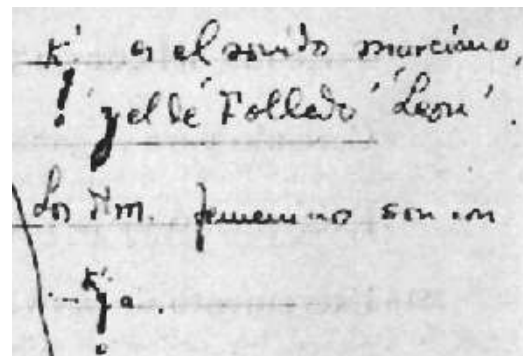 K' es el sonido murciano,
y el de Follado 'Leon'.
Los Nm. femeninos son con
a.